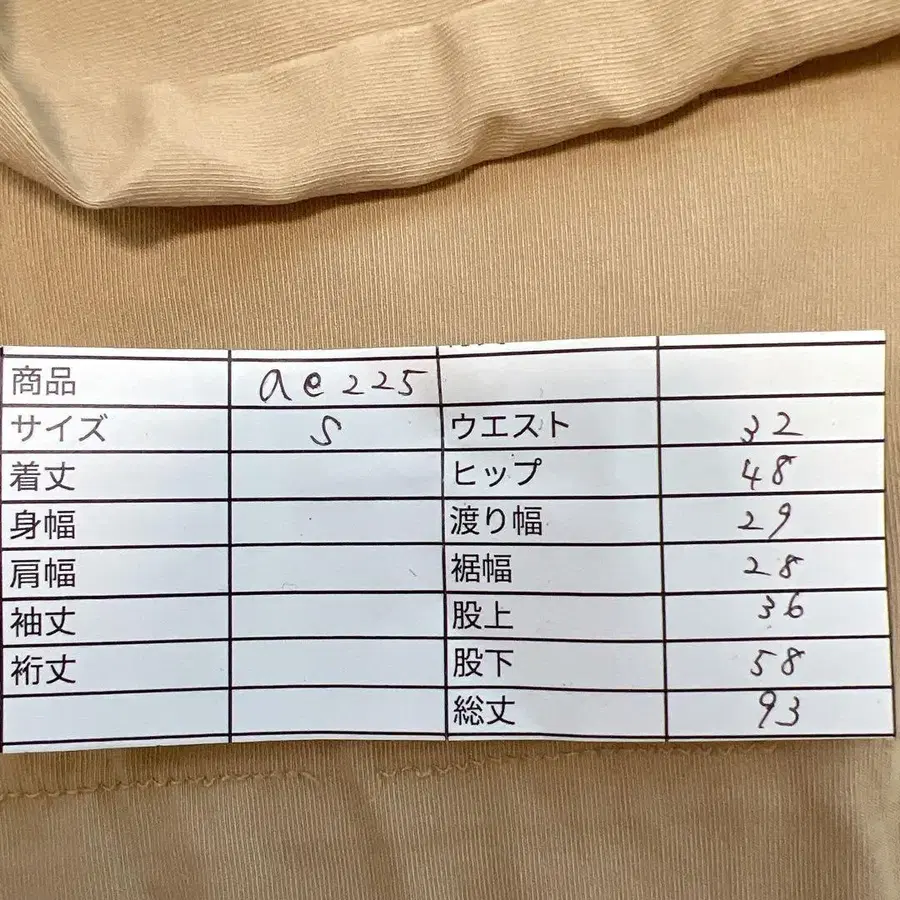 商品 ae225
サイズ S ウエスト 32
着丈 ヒップ 48
身幅 渡り幅 29
肩幅 裾幅 28
袖丈 股上 36
裄丈 股下 58
総丈 93